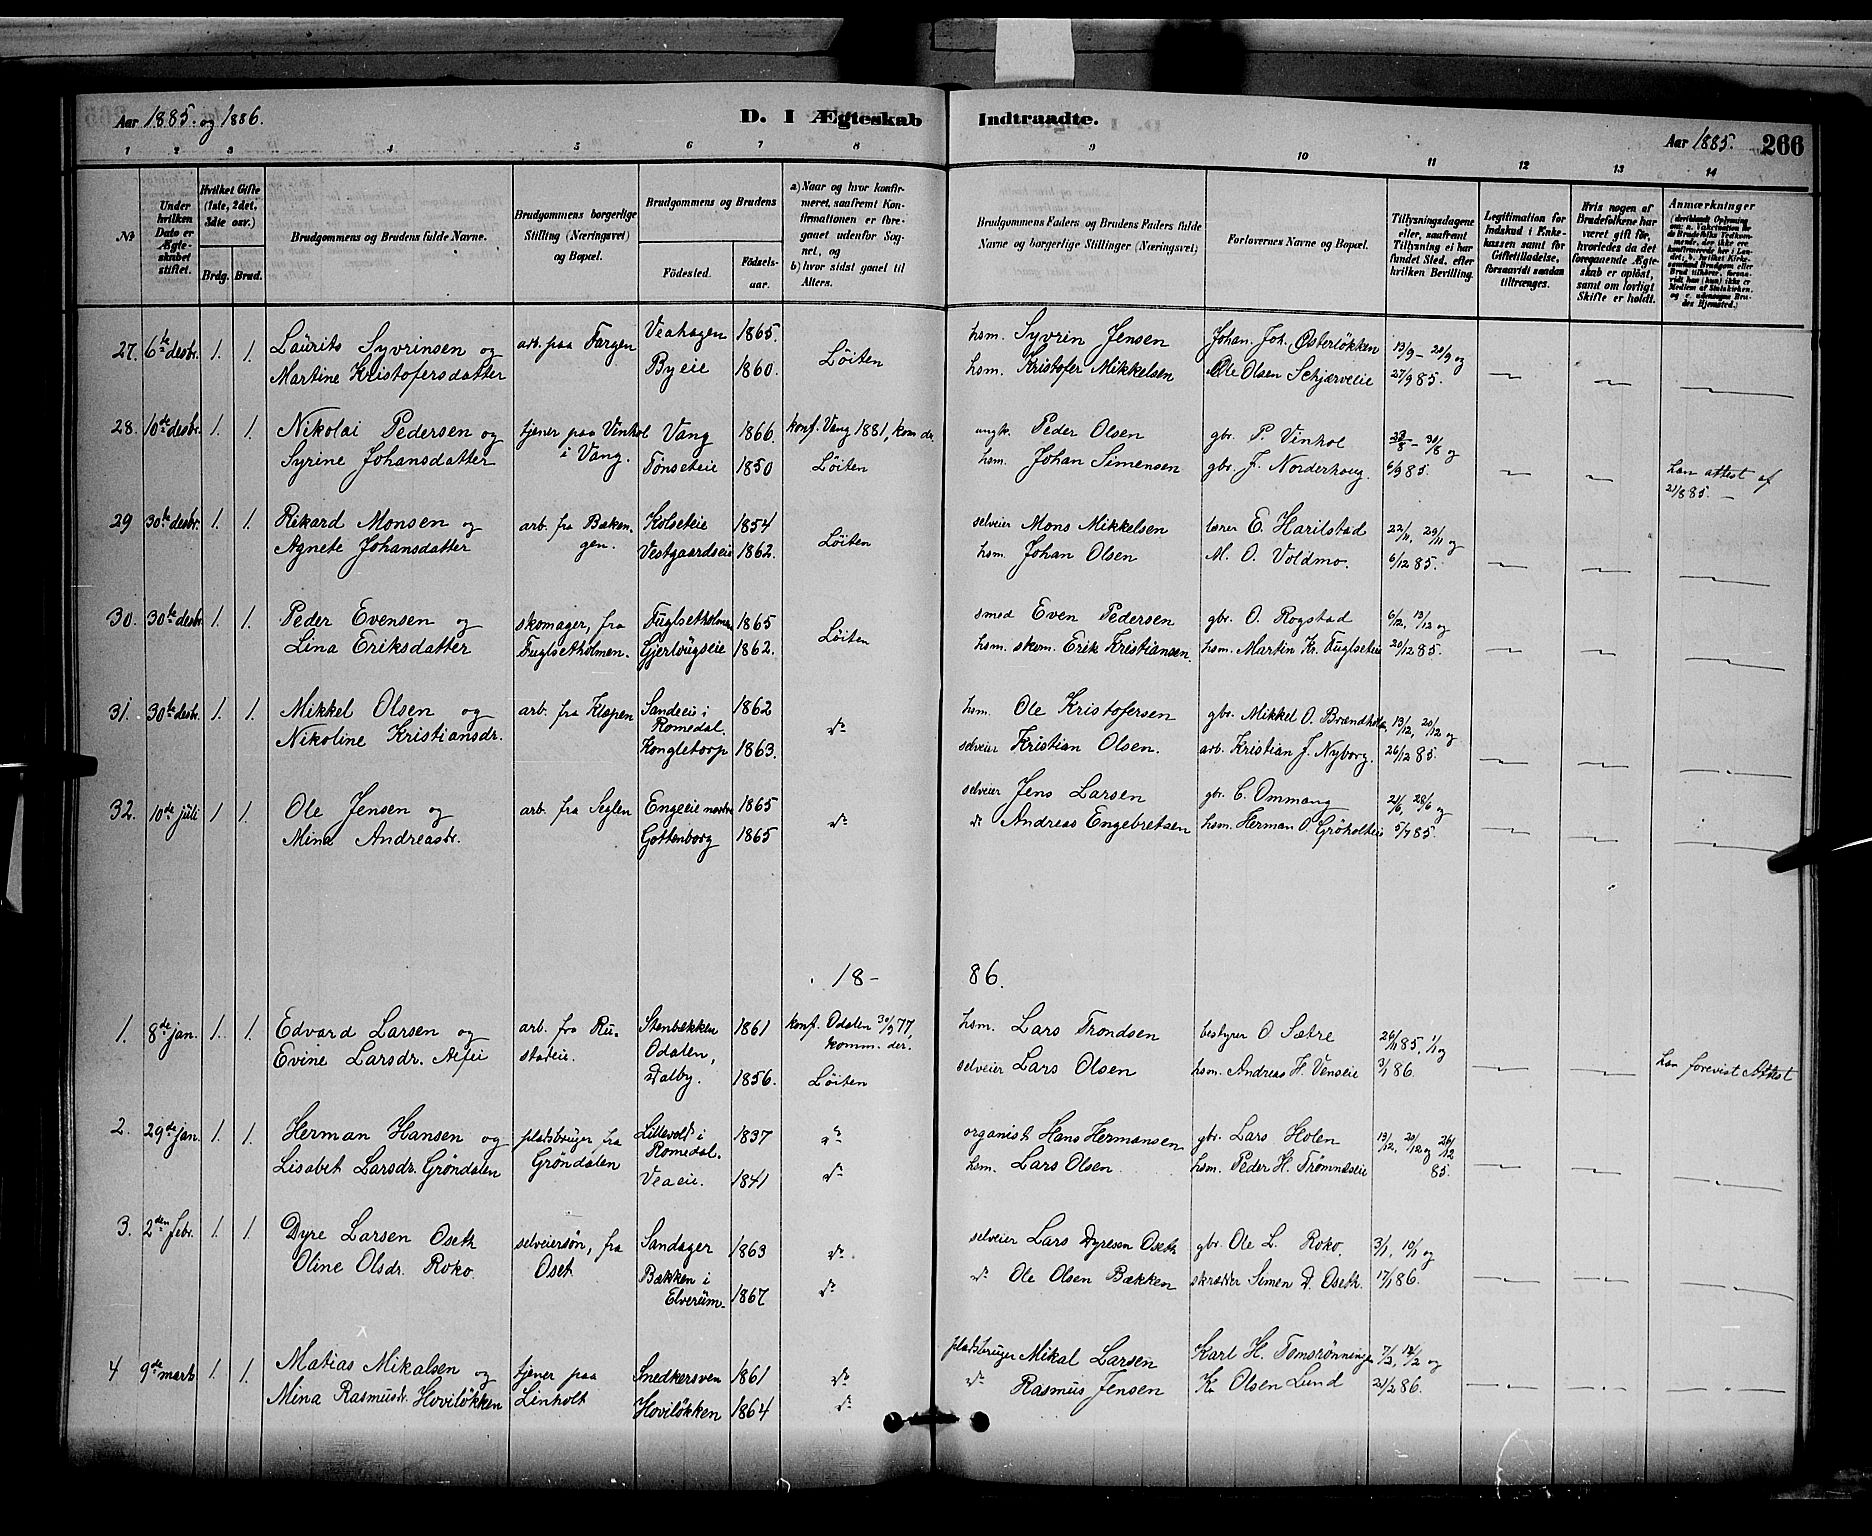 Aar 1885 og 1886. D. I Ægteskab Indtraadte. Aar 1885. 266
1 2 3 4 5 6 7 8 9 10 11 12 13 14
№
Under hvilken Dato er Ægteskabet stiftet.
Hvilket Gifte (1ste, 2det, 3die osv.)
Brdg. Brud.
Brudgommens og Brudens fulde Navne.
Brudgommens borgerlige Stilling (Næringsvei) og Bopæl.
Brudgommens og Brudens
Fødested. Fødselsaar.
a) Naar og hvor konfirmeret, saafremt Konfirmationen er foregaaet udenfor Sognet, og b) hvor sidst gaaet til Alters.
Brudgommens Faders og Brudens Faders fulde Navne og borgerlige Stillinger (Næringsvei)
Forlovernes Navne og Bopæl.
Tillysningsdagene eller, saafremt Tillysning ei har fundet Sted, efter hvilken Bevilling.
Legitimation for Indskud i Enkekassen samt for Giftetilladelse, forsaavidt saadan tiltrænges.
Hvis nogen af Brudefolkene har været gift før, hvorledes da det foregaaende Ægteskab er opløst, samt om lovligt Skifte er holdt.
Anmærkninger
27. 6te desbr. 1. 1. Laurits Syvrinsen og arb. paa Fargen Veahagen 1865. Løiten hsm. Syvrin Jensen Johan Joh. Østerløkken 13/9 – 20/9 og
Martine Kristofersdatter Byeie 1860. hsm. Kristofer Mikkelsen Ole Olsen Schjærveeie 27/9 85.
28. 10de desbr. 1. 1. Nikolai Pedersen og tjener paa Vinhol Vang 1866. konf. Vang 1881, kom. dr. ungk. Peder Olsen gbr. P. Vinhol 23/8 – 30/8 og
Syrine Johansdatter i Vang. Tønseteie 1850 Løiten hsm. Johan Simensen gbr. J. Norderhoug. 6/9 85. han attest af
21/8 85. –
29 30te desbr. 1. 1. Rikard Monsen og arb. fra Baken- Kolseteie 1854 Løiten selveier Mons Mikkelsen lærer E. Harilstad 22/11, 29/11 og
Agnete Johansdatter gen. Vestgaardseie 1862. hsm. Johan Olsen M. O. Voldmo. 6/12 85.
30. 30te desbr. 1. 1. Peder Evensen og skomager, fra Fuglsetholmen 1865 Løiten smed Even Pedersen gbr. O. Rogstad 6/12, 13/12 og
Lina Eriksdatter Fuglsetholmen. Gjerlougseie 1862. hsm. skom. Erik Kristiansen. hsm. Martin Kr. Fuglseteie 20/12 85.
31. 30te desbr. 1. 1. Mikkel Olsen og arb. fra Kløpen Sandeeie i Romedal. 1862 do hsm. Ole Kristofersen gbr. Mikkel O. Brændholen, 13/12, 20/12 og
Nikoline Kristiansdr. Kongletorp 1863. selveier Kristian Olsen. arb. Kristian J. Nyborg. 26/12 85.
32. 10de juli 1 1. Ole Jensen og arb. fra Seglen Engeeie nordre 1865 do selveier Jens Larsen gbr. C. Ommang 21/6, 28/6 og
Mina Andreasdr. Gottenborg 1865 do Andreas Engebretsen hsm. Herman O. Grøholteie 5/7 85.
18– 86.
1. 8de jan. 1. 1. Edvard Larsen og arb. fra Ru- Stenbekken Odalen, 1861 konf. Odalen 30/9 77. komm. der. hsm. Lars Trondsen bestyrer O Sætre 26/11 85, 1/1 og
Evine Larsdr. Alfei stadeie. Dalby. 1856. Løiten selveier Lars Olsen hsm. Andreas H. Venseie 3/1 86. han forevist Attest
2. 29de jan. 1. 1. Herman Hansen og pladsbruger fra Lillevold i Romedal. 1837 do organist Hans Hermansen gbr. Lars Holen 13/12, 20/12 og 26/12
Lisabet Larsdr. Grøndalen Grøndalen Veaeie. 1841 do hsm. Lars Olsen hsm. Peder H. Trømnæseie 85.
3. 2den febr. 1. 1. Dyre Larsen Oseth selveiersøn, fra Sandager 1863 do selveier Lars Dyresen Oseth gbr. Ole L. Roko. 3/1, 10/1 og
Oline Olsdr. Roko Oset Bækken i Elverum. 1867 do do Ole Olsen Bækken skrædder Simen D. Oseth. 17/1 86.
4 9de marts 1. 1. Matias Mikalsen og tjener paa Snedkersven 1861 do pladsbruger Mikal Larsen Karl H. Tomsrønningen 7/2, 14/2 og
Mina Rasmusdr. Hoviløkken Linholt Hoviløkken 1864 do do Rasmus Jensen Kr Olsen Lund 21/2 86.